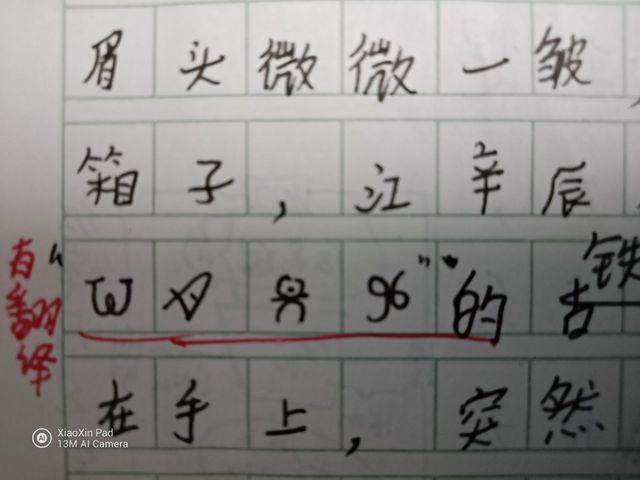 眉头微微一皱
箱子，江辛辰
的古铁
在手上，突然
有翻译
XiaoXin Pad
13M AI Camera